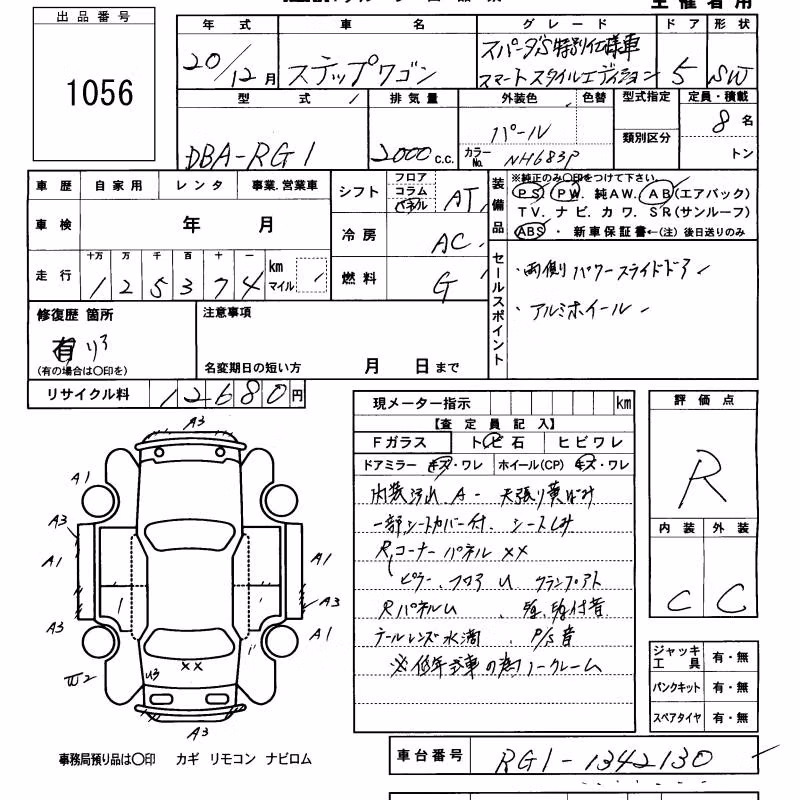 主催者用
出品番号
1056
年式 車名 グレード ドア 形状
20/12月 ステップワゴン スパーダS特別仕様車 5 SW
スマートスタイルエディション
型式 排気量 外装色 色替 型式指定 定員・積載
DBA-RG1 2000 c.c. パール 8名
カラーNo. NH683P 類別区分 トン
車歴 自家用 レンタ 事業.営業車
車検 年 月
走行 十万 百 千 万 十 一 km マイル
125374
シフト フロア コラム パネル AT
冷房 AC
燃料 G
装備品 ※純正のみ○印をつけて下さい。
PS. PW. 純AW. AB(エアバック)
TV. ナビ. カワ. SR(サンルーフ)
ABS ・新車保証書←(注)後日送りのみ
セールスポイント
・両側パワースライドドア
・アルミホイール
修復歴 箇所
有 リア
(有の場合は○印を)
注意事項
名変期日の短い方 月 日まで
リサイクル料 12680円
現メーター指示 km
【査定員記入】
Fガラス トビ石 ヒビワレ
ドアミラー キズ・ワレ ホイール(CP) キズ・ワレ
内装汚れ A- 天張り黄ばみ
一部シートカバー付、シートしみ
Rコーナーパネル XX
ピラー、フロア U クランプアト
RパネルU
テールレンズ水滴、P/S音
※低年式車の為ノークレーム
評価点
R
内装 外装
C C
ジャッキ工具 有・無
パンクキット 有・無
スペアタイヤ 有・無
A3
A1
A3
A1
A3
A1
A3
A1
U3
XX
A3
事務局預り品は○印 カギ リモコン ナビロム
車台番号 RG1-1342130